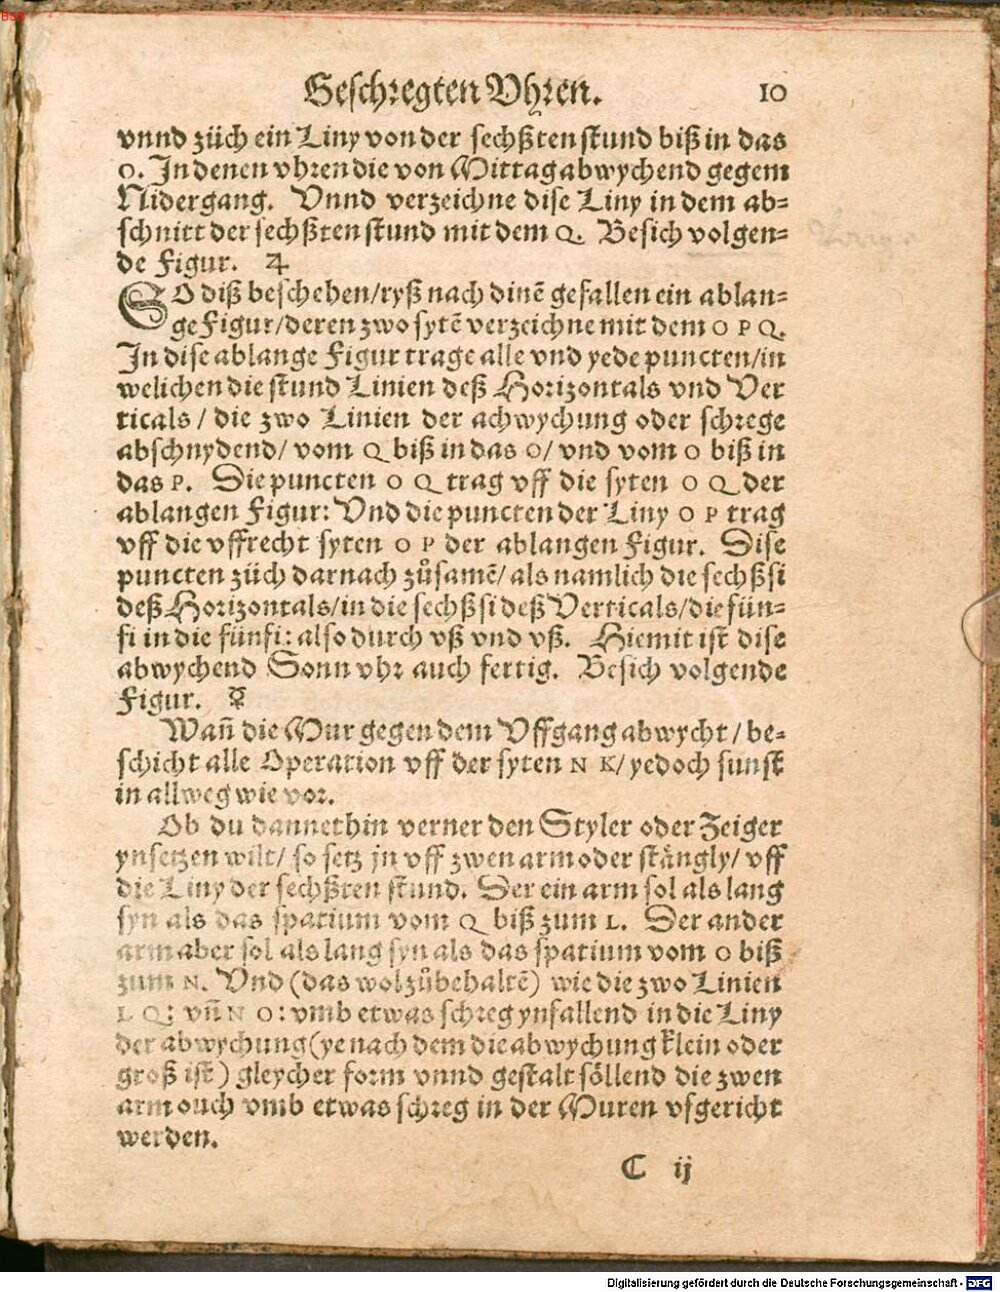 Geschregten Vhren. 10
vnnd züch ein Liny von der sechßten stund biß in das
O. In denen vhren die von Mittag abwychend gegem
Nidergang. Vnnd verzeichne dise Liny in dem ab=
schnitt der sechßten stund mit dem Q. Besich volgen=
de Figur. ♃
SO diß beschehen/ryß nach dinẽ gefallen ein ablan=
ge Figur/deren zwo sytẽ verzeichne mit dem O P Q.
In dise ablange Figur trage alle vnd yede puncten/in
welichen die stund Linien deß Horizontals vnd Ver
ticals / die zwo Linien der achwychung oder schrege
abschnydend/ vom Q biß in das O/ vnd vom O biß in
das P. Die puncten O Q trag vff die syten O Q der
ablangen Figur: Vnd die puncten der Liny O P trag
vff die vffrecht syten O P der ablangen Figur. Dise
puncten züch darnach zůsamẽ/ als namlich die sechßsi
deß Horizontals/in die sechßsi deß Verticals/die fün=
fi in die fünfi: also durch vß vnd vß. Hiemit ist dise
abwychend Sonn vhr auch fertig. Besich volgende
Figur. ☿
Wañ die Mur gegen dem Vffgang abwycht / be=
schicht alle Operation vff der syten N K/ yedoch sunst
in allweg wie vor.
Ob du dannethin verner den Styler oder Zeiger
ynsetzen wilt/ so setz jn vff zwen arm oder stängly/ vff
die Liny der sechßten stund. Der ein arm sol als lang
syn als das spatium vom Q biß zum L. Der ander
arm aber sol als lang syn als das spatium vom O biß
zum N. Vnd (das wol zůbehaltẽ) wie die zwo Linien
L Q: vñ N O: vmb etwas schreg ynfallend in die Liny
der abwychung (ye nach dem die abwychung klein oder
groß ist) gleycher form vnnd gestalt söllend die zwen
arm ouch vmb etwas schreg in der Muren vfgericht
werden.
C ij
Digitalisierung gefördert durch die Deutsche Forschungsgemeinschaft - DFG